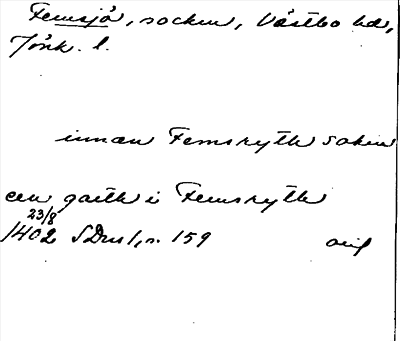 Femsjö, socken, Västbo hd,
Jönk. l.
innan Femsryth sokin
een garth i Femsryth
23/8
1402 SDns 1, s. 159 orig